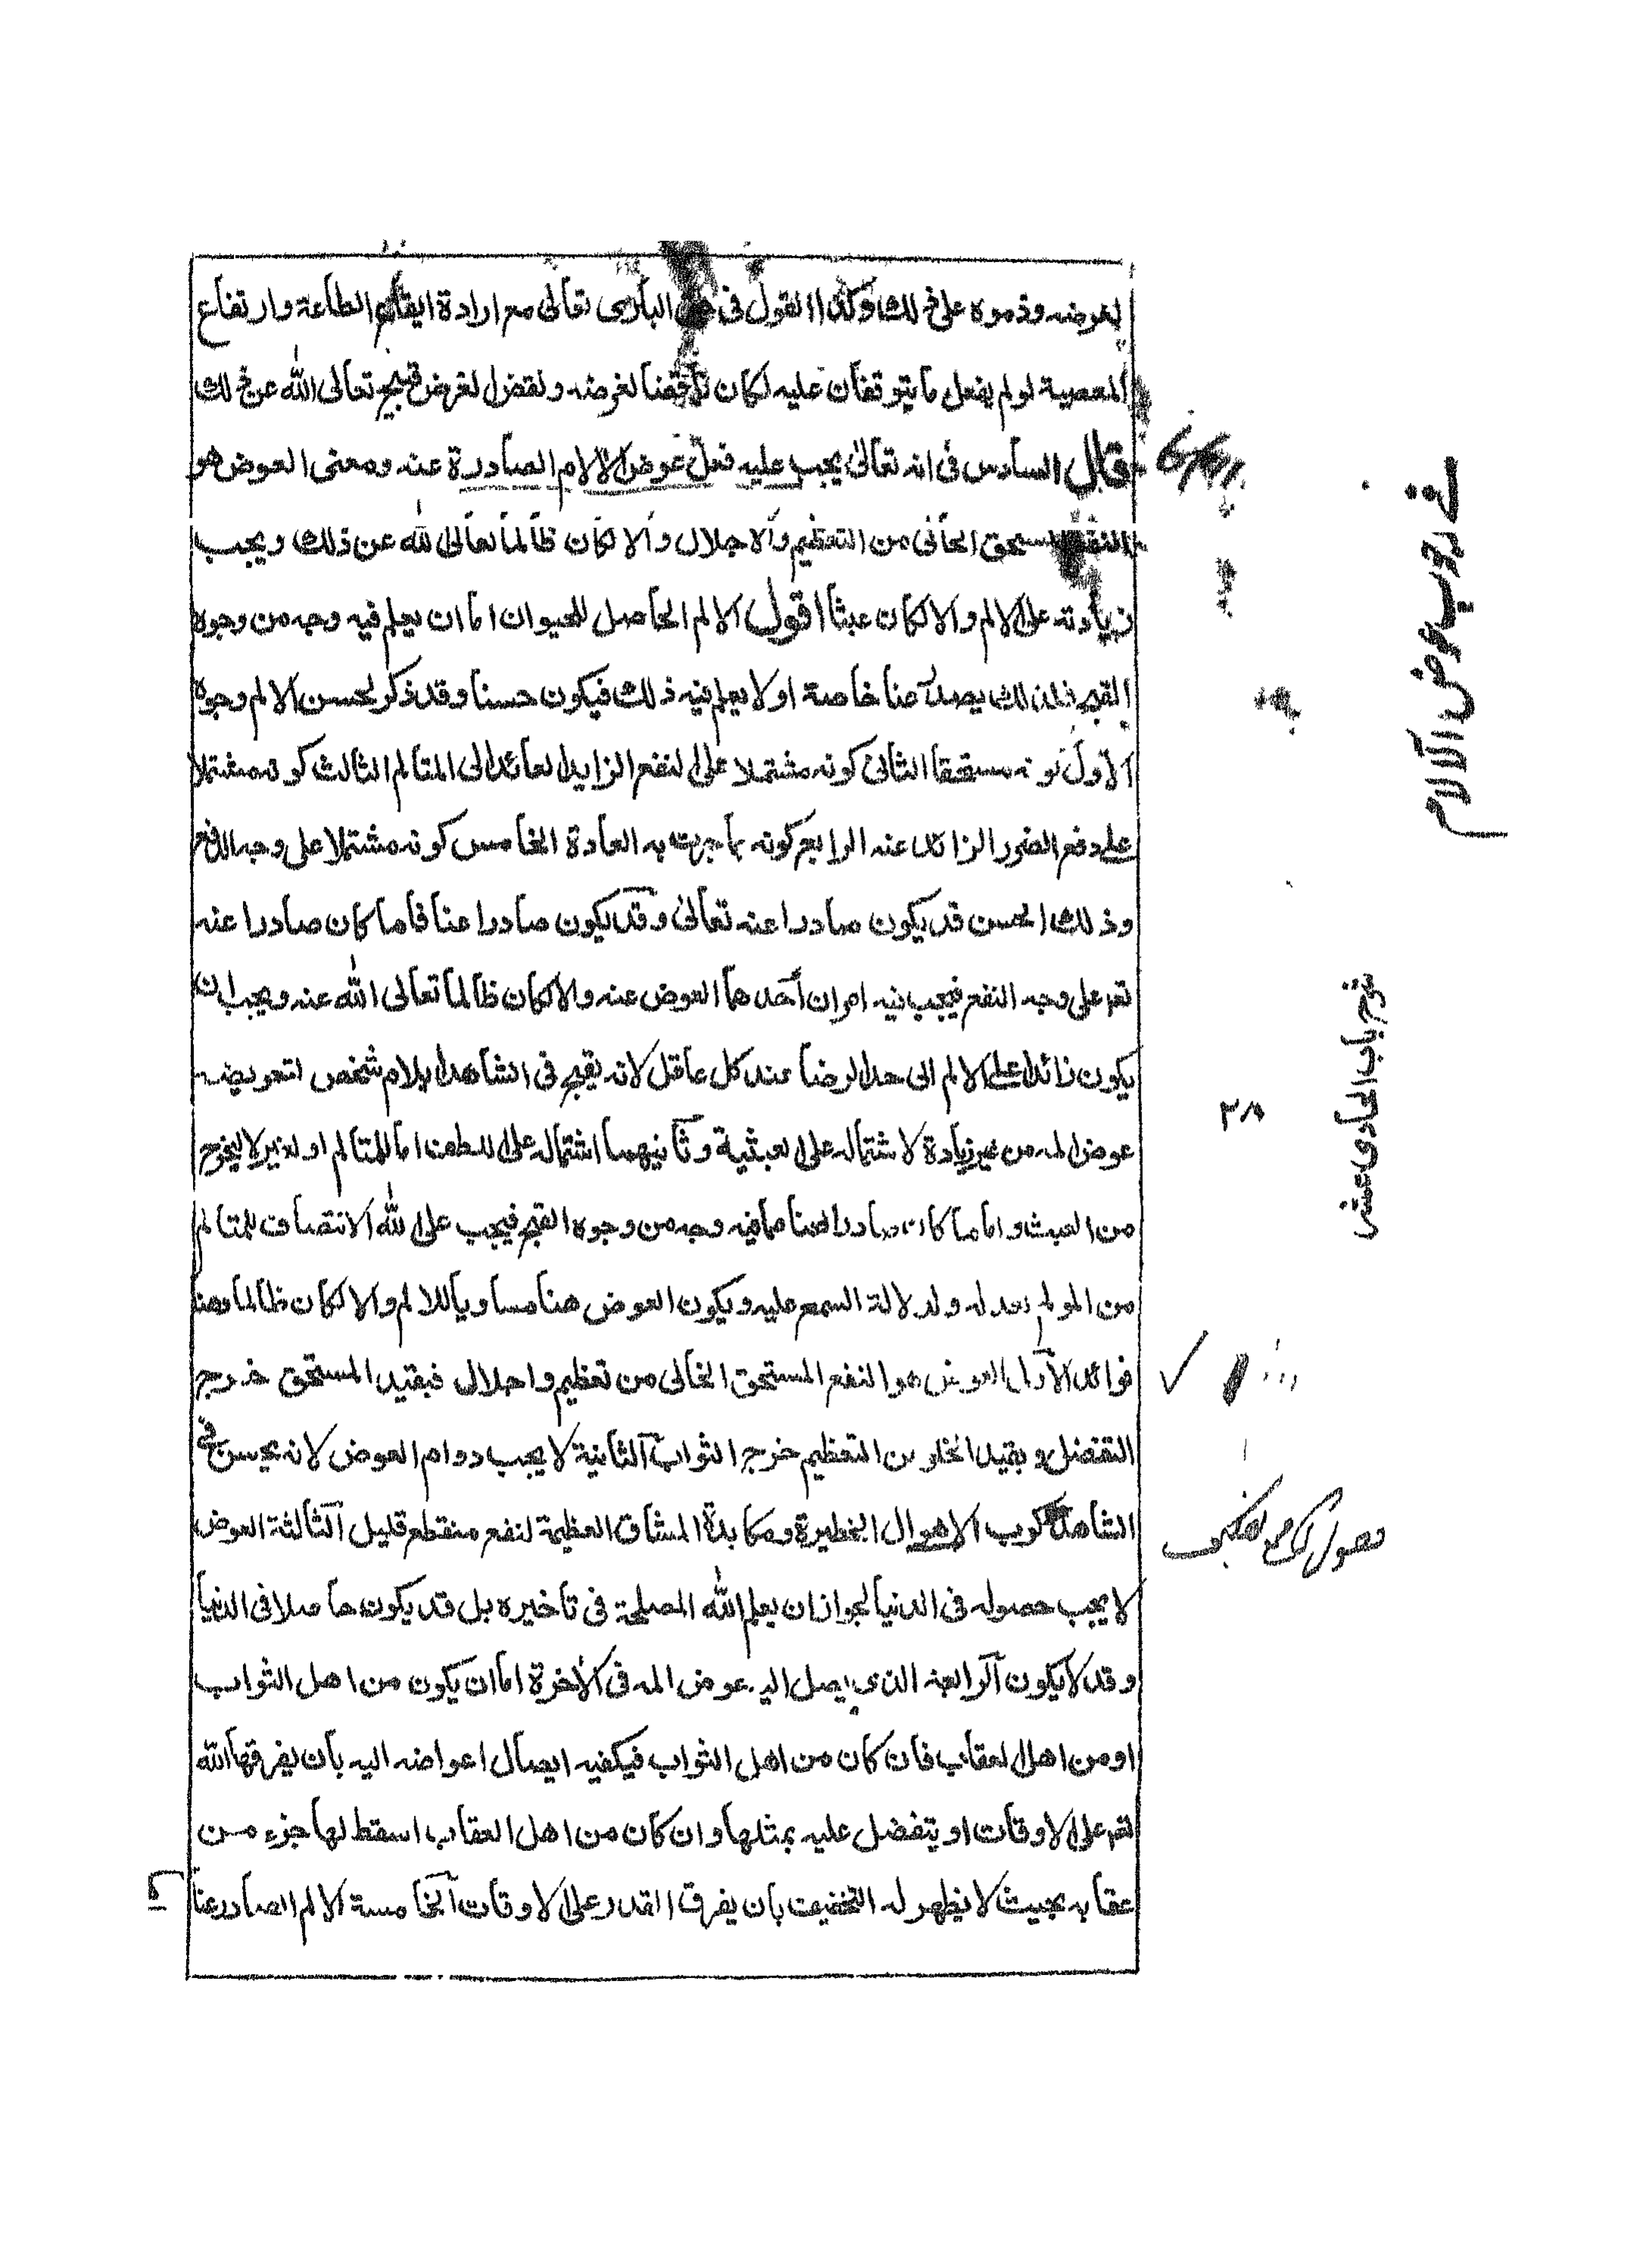 لغرضه وذموه على ذلك وكذا القول فى حق البارى تعالى مع ارادة ايقاع الطاعة وارتفاع
المعصية لو لم يفعل ما يتوقفان عليه لكان ناقضا لغرضه ونقض الغرض قبيح تعالى الله عن ذلك
قال السادس فى انه تعالى يجب عليه فعل عوض الالام الصادرة عنه ومعنى العوض هو
النفع المستحق الخالى من التعظيم والاجلال والا لكان ظالما تعالى الله عن ذلك ويجب
زيادته على الالم والا لكان عبثا اقول الالم الحاصل للحيوان اما ان يعلم فيه وجه من وجوه
القبح فذلك يصدر عنا خاصة او لا يعلم فيه ذلك فيكون حسنا وقد ذكر لحسن الالم وجوه
الاول كونه مستحقا الثانى كونه مشتملا على النفع الزايد العائد الى المتالم الثالث كونه مشتملا
على دفع الضرر الزائد عنه الرابع كونه بما جرت به العادة الخامس كونه مشتملا على وجه الدفع
وذلك الحسن قد يكون صادرا عنه تعالى وقد يكون صادرا عنا فاما ما كان صادرا عنه
تعم على وجه النفع فيجب فيه امران احدهما العوض عنه والا لكان ظالما تعالى الله عنه ويجب ان
يكون زائدا على الالم الى حد الرضا عند كل عاقل لانه يقبح فى الشاهد ايلام شخص لتعويضه
عوض المه من غير زيادة لاشتماله على العبثية وثانيهما اشتماله على اللطف اما للمتالم او لغيره ليخرج
من العبث واما ما كان صادرا عنا مما فيه وجه من وجوه القبح فيجب على الله الانتصاف للمتالم
من المولم لعدله ولدلالة السمع عليه ويكون العوض هنا مساويا للالم والا لكان ظالما وهنا
فوائد الاول العوض هو النفع المستحق الخالى من تعظيم واجلال فبقيد المستحق خرج
التفضل وبقيد الخلو من التعظيم خرج الثواب الثانية لا يجب دوام العوض لانه يحسن فى
الشاهد ركوب الاهوال الخطيرة ومكابدة المشاق العظيمة لنفع منقطع قليل الثالثة العوض
لا يجب حصوله فى الدنيا لجواز ان يعلم الله المصلحة فى تاخيره بل قد يكون حاصلا فى الدنيا
وقد لا يكون الرابعة الذى يصل اليه عوض المه فى الاخرة اما ان يكون من اهل الثواب
او من اهل العقاب فان كان من اهل الثواب فيكفيه ايصال اعواضه اليه بان يفرقها الله
تعم على الاوقات او يتفضل عليه بمثلها وان كان من اهل العقاب اسقط لها جزء من
عقابه بحيث لا يظهر له التخفيف بان يفرق القدر على الاوقات الخامسة الالم الصادر عنا
فى وجوب عوض الالام
شرح باب الحادى عشر
٣٨